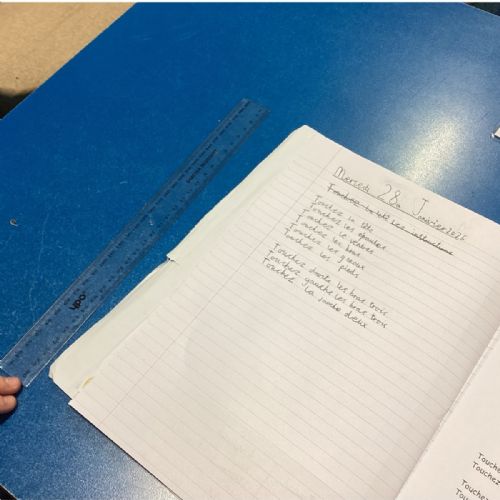 Mercredi 28 Janvier 2026
Touchez la tête
Touchez les épaules
Touchez le ventre
Touchez les bras
Touchez les genoux
Touchez les pieds
Touchez droite les bras trois
Touchez gauche les bras trois
Touchez la jambe deux
Touche
Touchez
Touche